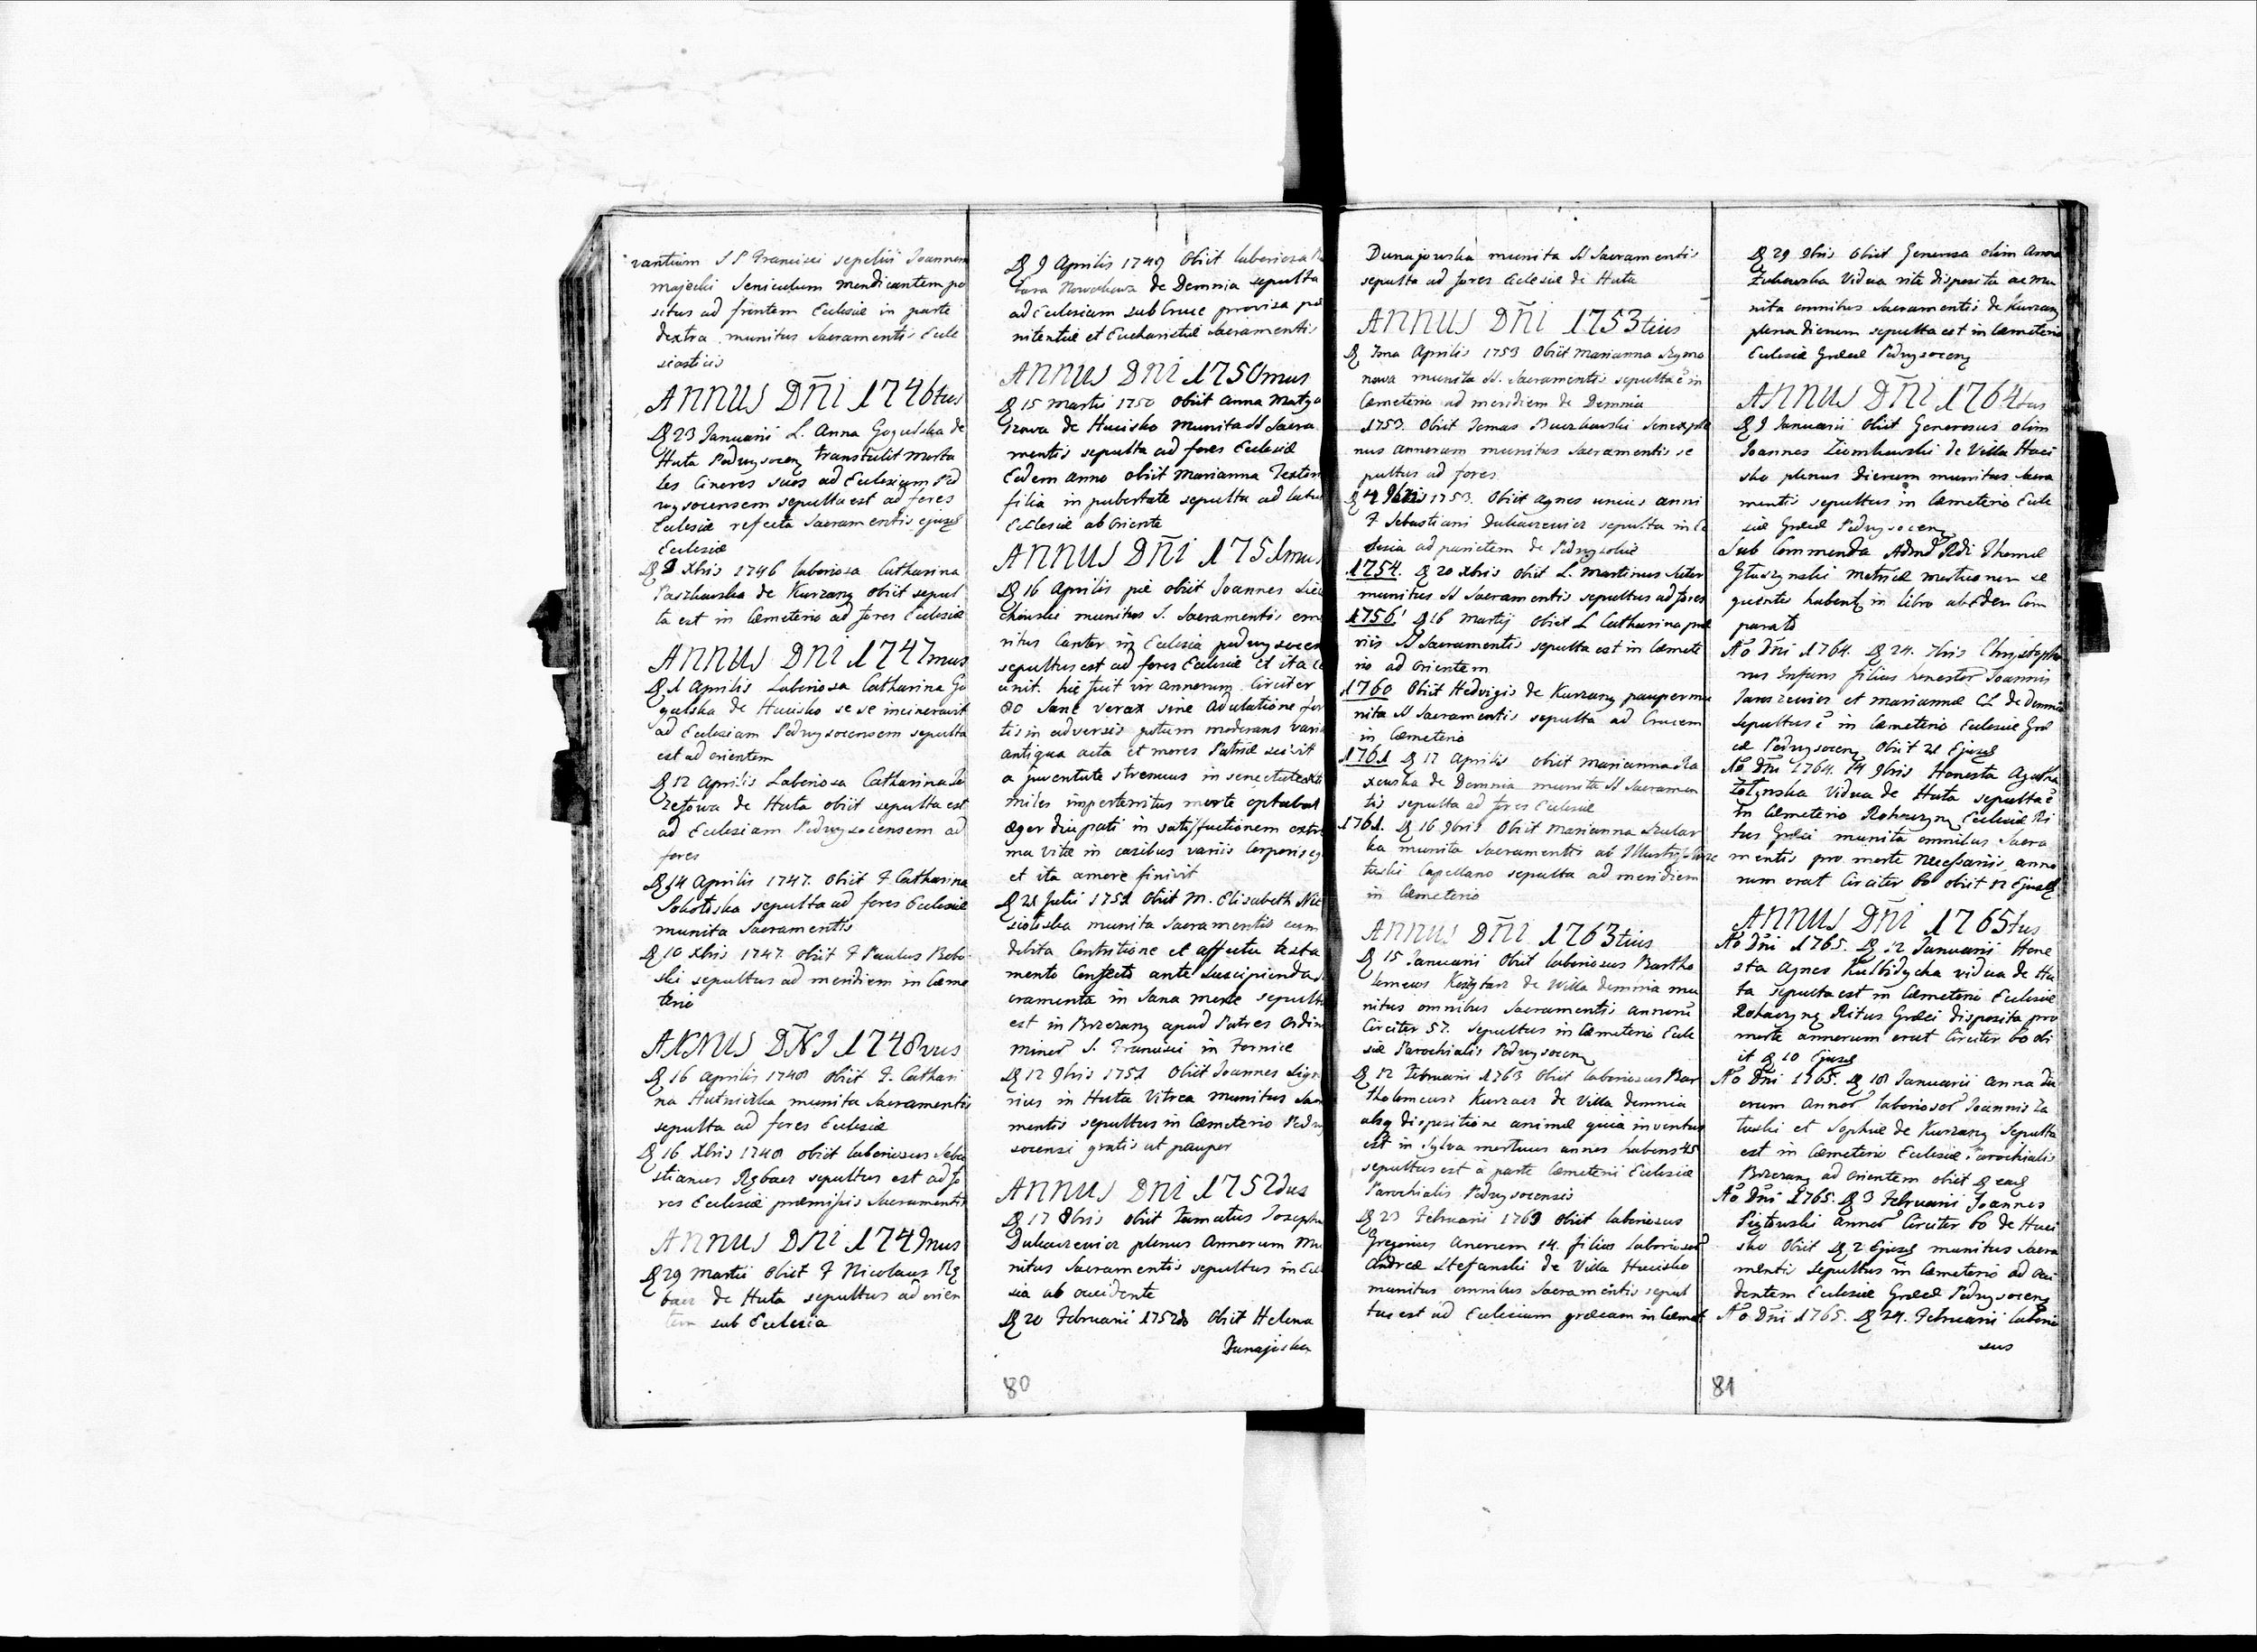 vantium S P Francisci sepelivi Joannem
majecki seniculum mendicantem po
situs ad frontem Ecclesiæ in parte
dextra munitus Sacramentis Eccle
siasticis
ANNUS DÑI 1746tus
D 23 Januarii L. Anna Gogulska de
Huta Podwysocen transtulit morta
les Cineres suos ad Ecclesiam Pod
wysocensem sepulta est ad fores
Ecclesiæ refecta Sacramentis ejusd
Ecclesiæ
D 8 Xbris 1746 laboriosa Catharina
Paszkowska de Kurzany obiit sepul
ta est in Cæmeterio ad fores Ecclesiæ
ANNUS DNI 1747mus
D 1 Aprilis Laboriosa Catharina Go
gulska de Hucisko se se incineravit
ad Ecclesiam Podwysocensem sepulta
est ad orientem
D 12 Aprilis Laboriosa Catharina
de Huta obiit sepulta est
ad Ecclesiam Podwysocensem ad
fores
D 14 Aprilis 1747. obiit F Catharina
Sokolska sepulta ad fores Ecclesiæ
munita Sacramentis
D 10 Xbris 1747. obiit F Paulus Bobo
ski sepultus ad meridiem in Cæme
terio
ANNUS DNI 1748vus
D 16 Aprilis 1748 obiit F. Cathari
na Hutniczka munita Sacramentis
sepulta ad fores Ecclesiæ
D 16 Xbris 1748 obiit laboriosus Seba
stianus Rybacz sepultus est ad fo
res Ecclesiæ præmissis Sacramentis
ANNUS DNI 1749nus
D 29 Martii obiit F Nicolaus Ry
bacz de Huta sepultus ad orien
tem sub Ecclesia
D 9 Aprilis 1749 obiit laboriosa
de Demnia sepulta
ad Ecclesiam sub Cruce provisa pœ
nitentiæ et Eucharistiæ Sacramentis
ANNUS DNI 1750mus
D 15 Martii 1750 obiit Anna
de Hucisko munita SS Sacra
mentis sepulta ad fores Ecclesiæ
Eodem anno obiit Marianna
filia in pubertate sepulta ad latus
Ecclesiæ ab Oriente
ANNUS DÑI 1751mus
D 16 Aprilis pie obiit Joannes
munitus S. Sacramentis eme
ritus Cantor in Ecclesia podwysocen
sepultus est ad fores Ecclesiæ Et ita
unit. hic fuit vir annorum Circiter
80 sane verax sine adulatione for
tis in adversis potum moderans varia
antiqua acta et mores Patriæ scivit
a juventute strenuus in senectute
miles imperterritus morte optabat
æger diu pati in satisfactionem extre
ma vitæ in casibus variis Corporis
et ita amore finivit
D 21 Julii 1751 obiit M. Elisabeth
munita Sacramentis cum
debita Contritione et affectu testa
mento Confecto ante suscipienda
cramenta in sana mente sepulta
est in Brzezany apud Patres Ordin
minor S. Francisci in Fornice
D 12 9bris 1751 obiit Joannes
in Huta Vitrea munitus Sacra
mentis sepultus in Cæmeterio Podwy
socensi gratis ut pauper
ANNUS DNI 1752dus
D 17 8bris obiit Famatus Josephus
plenus Annorum Mu
nitus Sacramentis sepultus in Eccle
sia ab occidente
D 20 Februarii 1752 Obiit Helena
Dunajoska
80
Dunajowska munita SS Sacramentis
sepulta ad fores Ecclesiæ de Huta
ANNUS DÑI 1753tius
D 7ma Aprilis 1753 Obiit Marianna Szyma
nowa munita SS. Sacramentis sepulta e in
Cæmeterio ad meridiem de Demnia
1753. Obiit Tomas senex ple
nus annorum munitus Sacramentis se
pultus ad fores
D 4 1753. Obiit Agnes unius anni
F Sebastiani sepulta in Ec
clesia ad parietem de Podwysokie
1754. D 20 Xbris obiit L. Martinus
munitus SS Sacramentis sepultus ad fores
1756. D 16 Martij obiit L Catharina præ
viis SS Sacramentis sepulta est in Cæmete
rio ad Orientem
1760 Obiit Hedvigis de Kurzany pauper mu
nita SS Sacramentis sepulta ad Crucem
in Cæmeterio
1761 D 17 Aprilis obiit Marianna
de Demnia munita SS Sacramen
tis sepulta ad fores Ecclesiæ
1761. D 16 9bris Obiit Marianna
ka munita Sacramentis ab
Capellano sepulta ad meridiem
in Cæmeterio
ANNUS DÑI 1763tius
D 15 Januarii Obiit laboriosus Bartho
lomeus de Villa Demnia mu
nitus omnibus Sacramentis annorũ
Circiter 57. Sepultus in Cæmeterio Eccle
siæ Parochialis Podwysocen
D 12 Februarii 1763 obiit laboriosus Bar
tholomeus Kurzacz de Villa Demnia
absq dispositione animæ quia inventus
est in sylva mortuus annos habens 45
sepultus est à parte Cæmeterii Ecclesiæ
Parochialis Podwysocensis
D 23 Februarii 1763 obiit laboriosus
Gregorius Anorum 14. filius laboriosor
Andreæ Stefanski de Villa Hucisko
munitus omnibus Sacramentis sepul
tus est ad Ecclesiam græcam in Cæmet
D 29 9bris Obiit Generosa olim Anna
Zukowska Vidua rite disposita ac mu
nita omnibus Sacramentis de Kurzany
plena dierum sepulta est in Cæmeterio
Ecclesiæ Græcæ Podwysocen
ANNUS DÑI 1764tus
D 9 Januarii obiit Generosus olim
Joannes de Villa Huci
sko plenus dierum munitus Sacra
mentis sepultus in Cæmeterio Eccle
siæ Græcæ Podwysocen
Sub Commenda Admd Rdi Thomæ
Gluszynski metricæ mortuorum se
quentes habent in libro ab Eodem Com
parato
Ao Dni 1764. D 24. 7bris Christopho
rus Infans filius honestor Joannis
et Mariannæ CL de Demnia
Sepultus e in Cæmeterio Ecclesiæ Græ
cæ Podwysocen Obiit 21 Ejusd
Ao Dni 1764. 14 9bris Honesta Agatha
Vidua de Huta sepulta e
in Cæmeterio Rohaczyn Ecclesiæ Ri
tus Græci munita omnibus Sacra
mentis pro morte necessariis anno
rum erat Circiter 60 obiit 12 Ejusd
ANNUS DÑI 1765tus
Ao Dni 1765. D 12 Januarii Hone
sta Agnes Kulbidycha vidua de Hu
ta sepulta est in Cæmeterio Ecclesiæ
Rohaczyn Ritus Græci disposita pro
morte annorum erat Circiter 60 obi
it D 10 Ejusd
Ao Dni 1765. D 18 Januarii Anna du
orum Annor laboriosor Joannis
et Sophiæ de Kurzany Sepulta
est in Cæmeterio Ecclesiæ Parochialis
Brzezany ad Orientem obiit D ead
Ao Dni 1765. D 3 Februarii Joannes
annor Circiter 60 de Huci
sko Obiit D 2 Ejusd munitus Sacra
mentis Sepultus in Cæmeterio ad occi
dentem Ecclesiæ Græcæ Podwysocen
Ao Dni 1765. D 24. Februarii laborio
sus
81